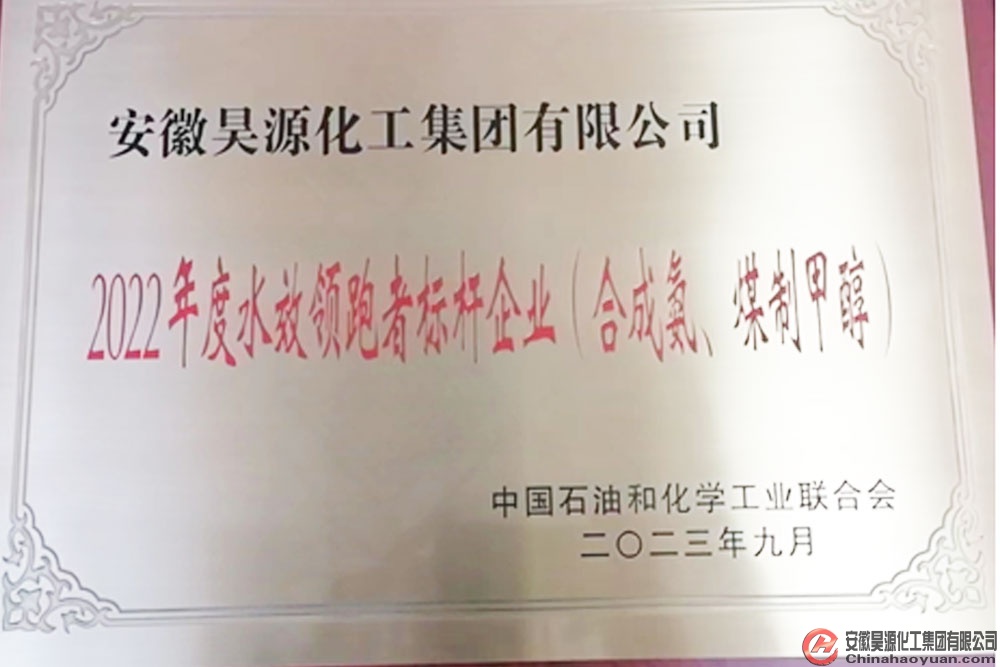 安徽昊源化工集团有限公司
2022年度水效领跑者标杆企业（合成氨、煤制甲醇）
中国石油和化学工业联合会
二〇二三年九月
安徽昊源化工集团有限公司
Chinahaoyuan.com